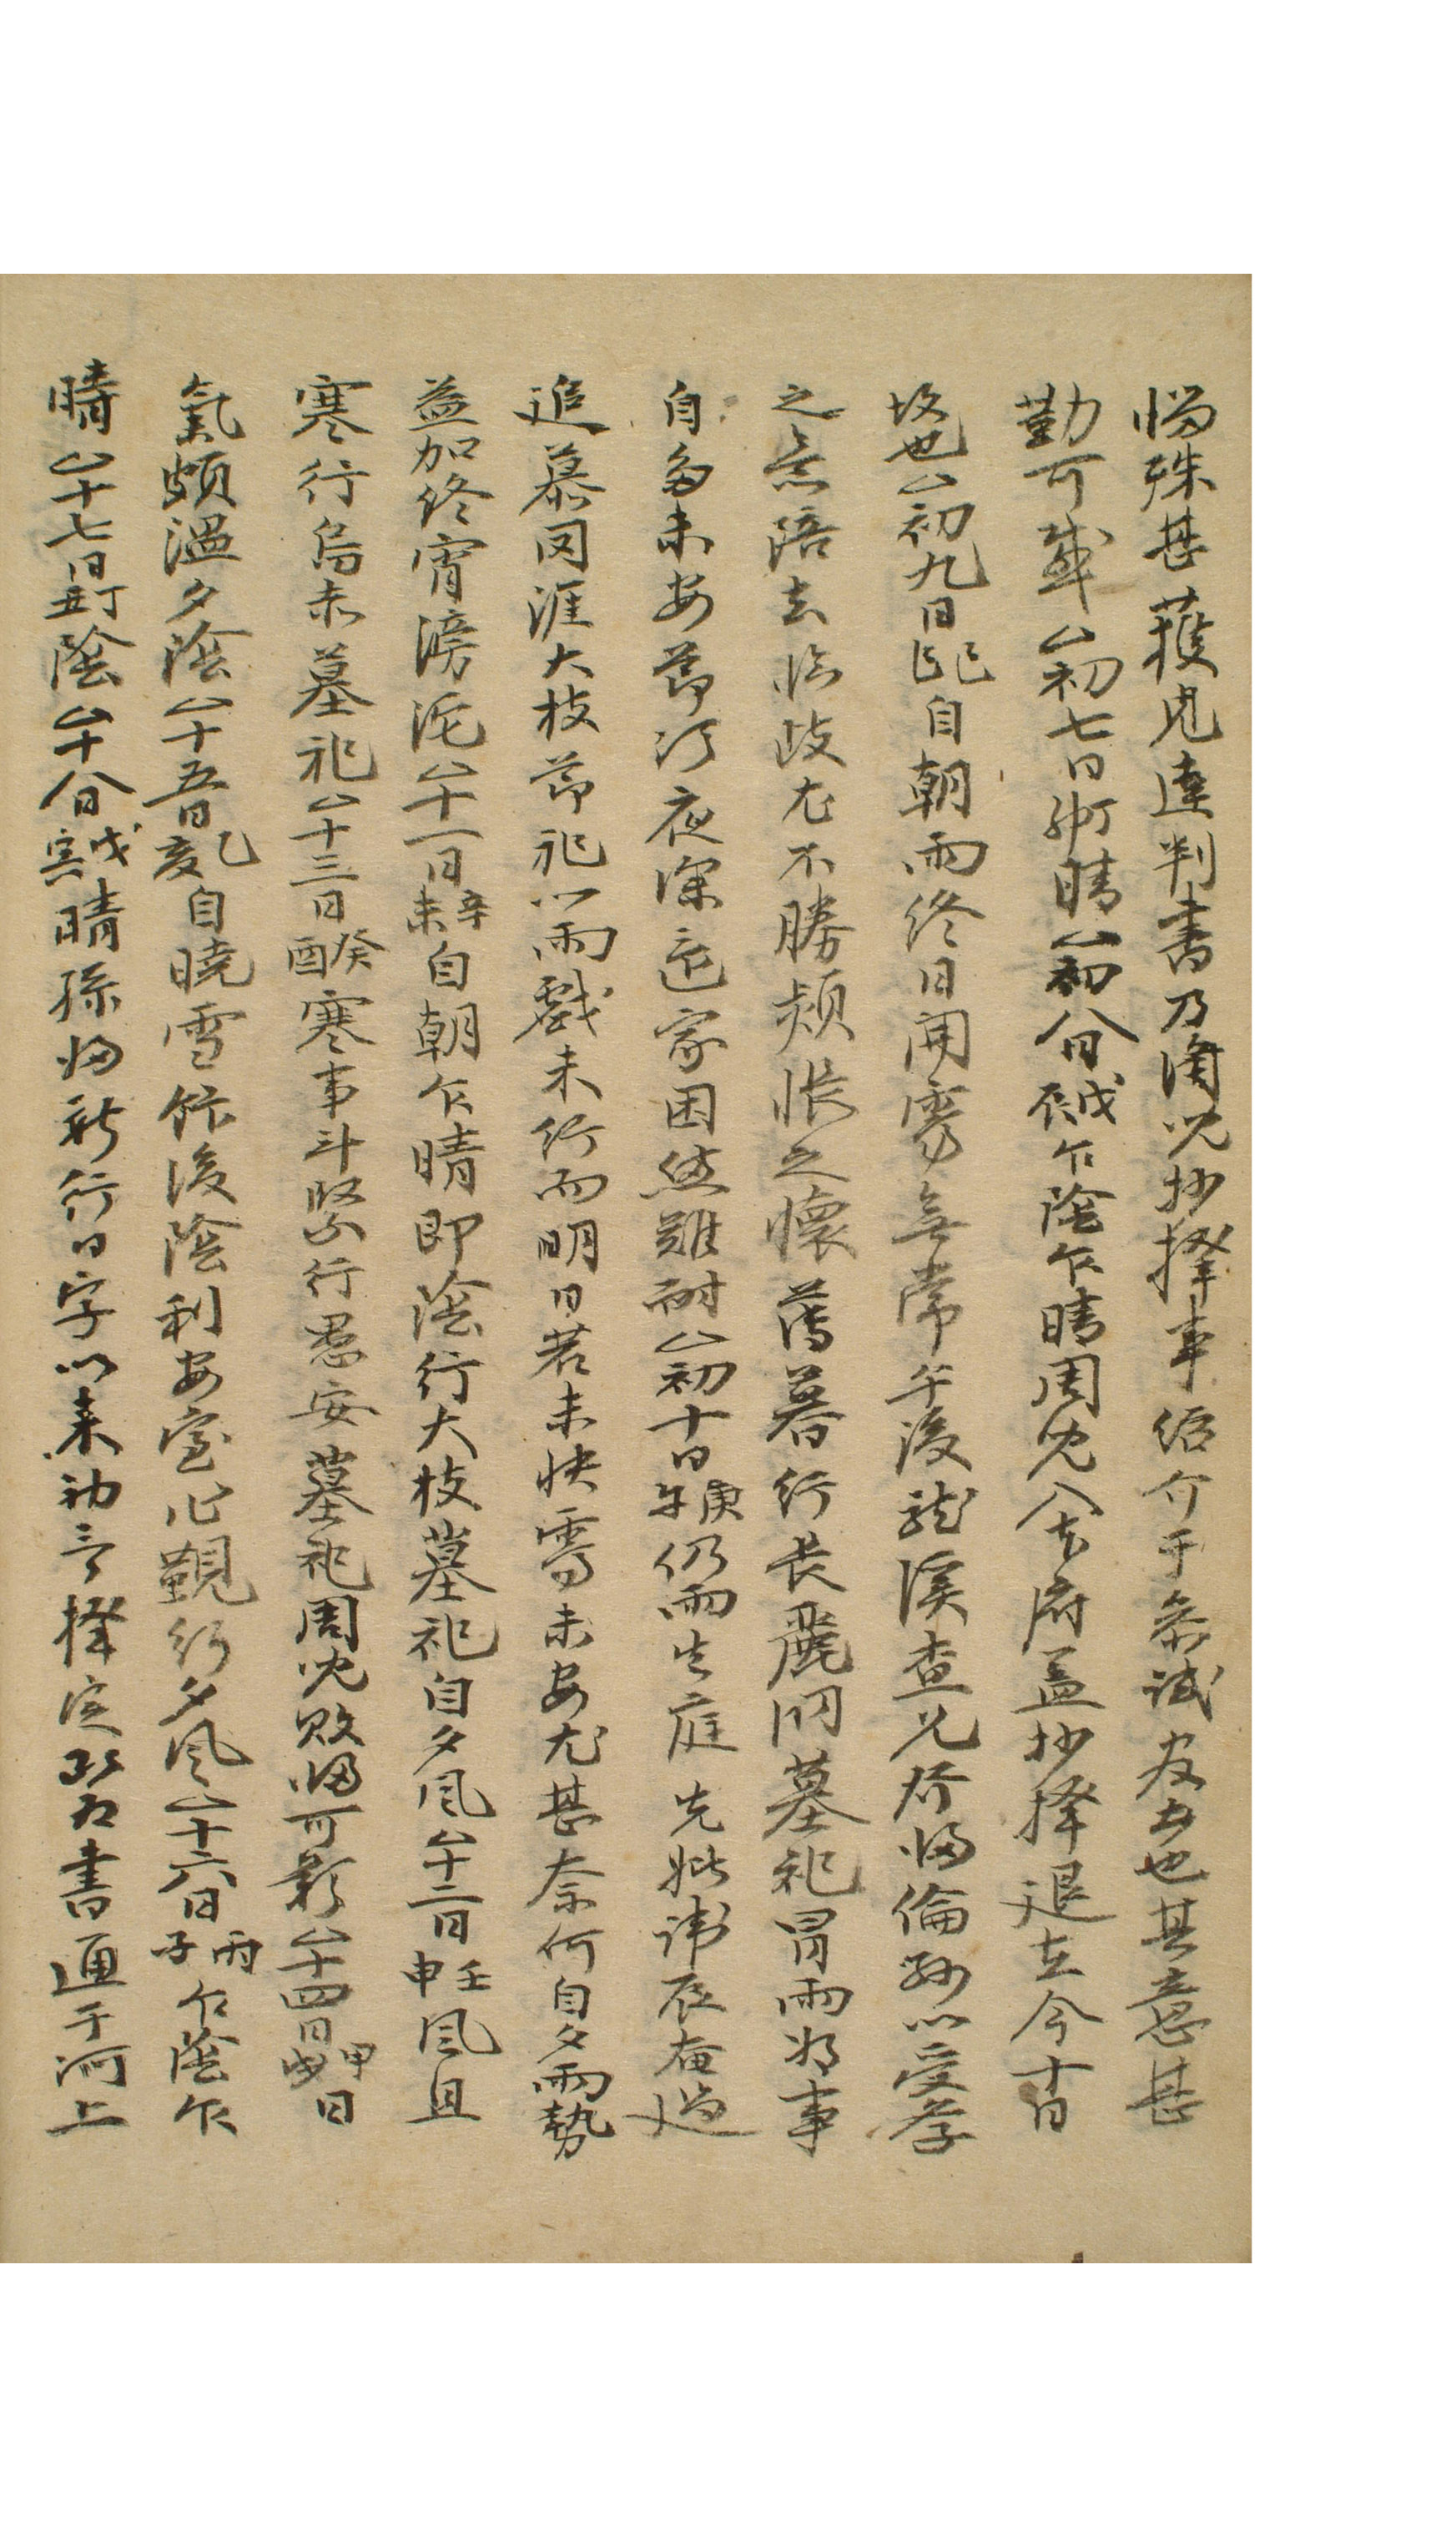 悩殊甚獲見達判書乃胤兄抄擇事紹介于參試友去也其意甚
勤可感 初七日丁卯晴 初八日戊辰乍陰乍晴周兄入去府盖抄擇退在今十日
故也 初九日己巳自朝雨終日開霁無常午後龍溪査兄行歸倫孫以受學
之意陪去臨歧尤不勝頻悵之懷薄暮行長麗洞墓祀冒雨將事
自多未安節汀夜深還家困惫難耐 初十日庚午仍雨先庭 先妣諱辰奄過
追慕罔涯大枝節祀以雨戲未行而明日若未快霽未安尤甚奈何自夕雨勢
益加終宵滂沱 十一日辛未自朝乍晴卽陰行大枝墓祀自夕風 十二日壬申風且
寒行烏赤墓祀 十三日癸酉寒事斗緊行愚安墓祀周兄敗歸可歎 十四日甲戌日
氣頗溫夕陰 十五日乙亥自曉雪飯後陰利安室作覲行夕風 十六日丙子乍陰乍
晴 十七日丁丑陰 十八日戊寅晴孫婦新行日字以來初三擇定改右書通于河上